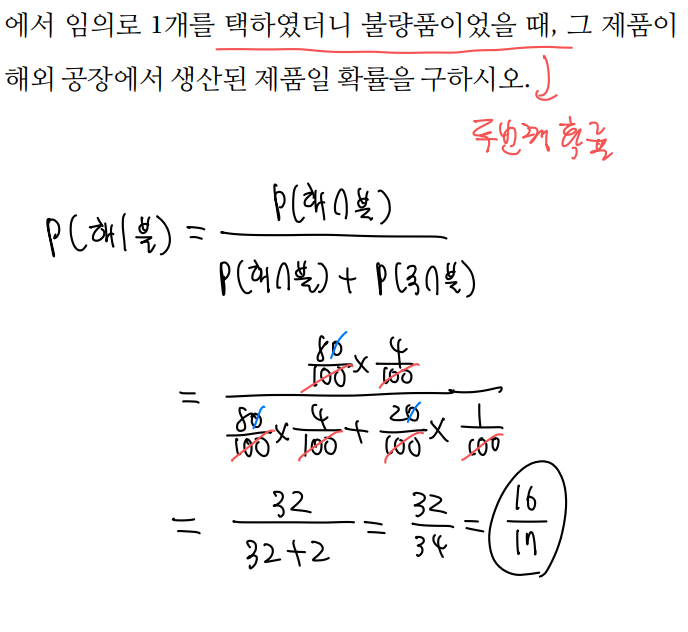 에서 임의로 1개를 택하였더니 불량품이었을 때, 그 제품이
해외 공장에서 생산된 제품일 확률을 구하시오.
두번째 확률
P(해|불) = P(해∩불) / P(해∩불) + P(국∩불)
= 80/100 × 4/100 / 80/100 × 4/100 + 20/100 × 1/100
= 32 / 32+2 = 32/34 = 16/17